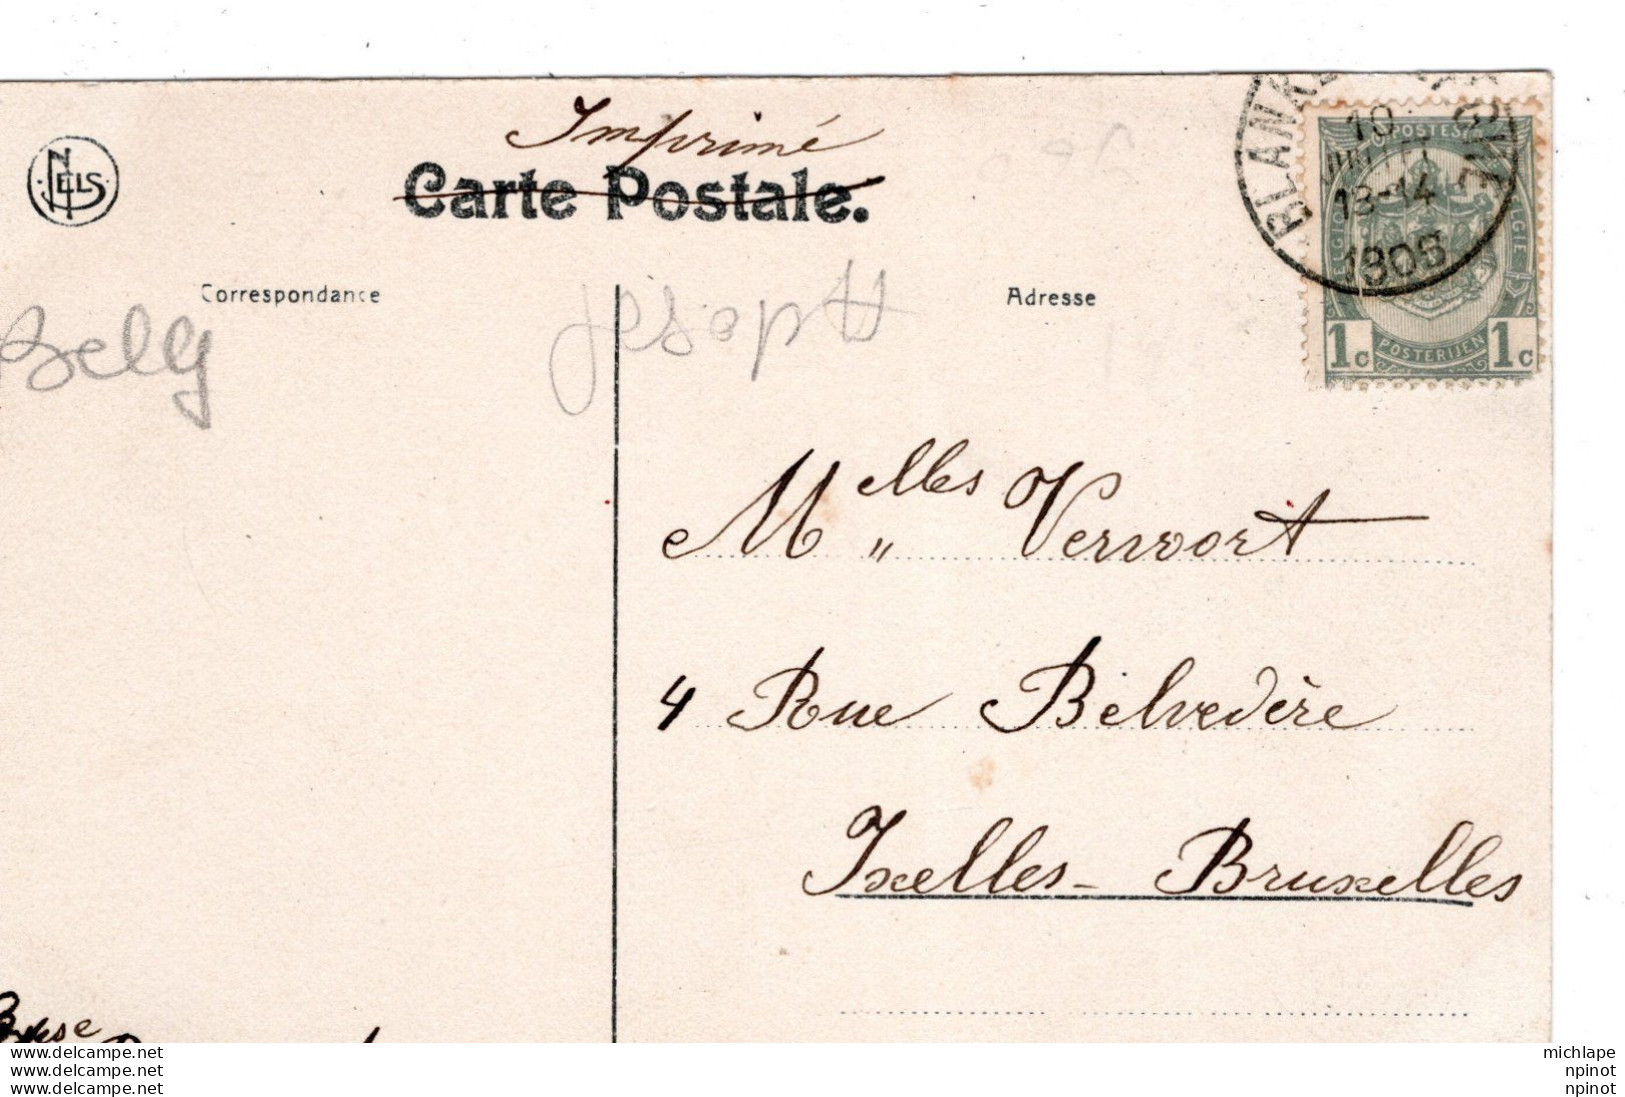 NELS
Imprimé
Carte Postale.
Correspondance
Adresse
Belg
10
13-14
1908
POSTES
BELGIQUE
BELGIE
1c POSTERIJEN 1c
Melles Vervoort
4 Rue Belvedère
Ixelles - Bruxelles
www.delcampe.net
www.delcampe.net
www.delcampe.net
michlape
npinot
npinot